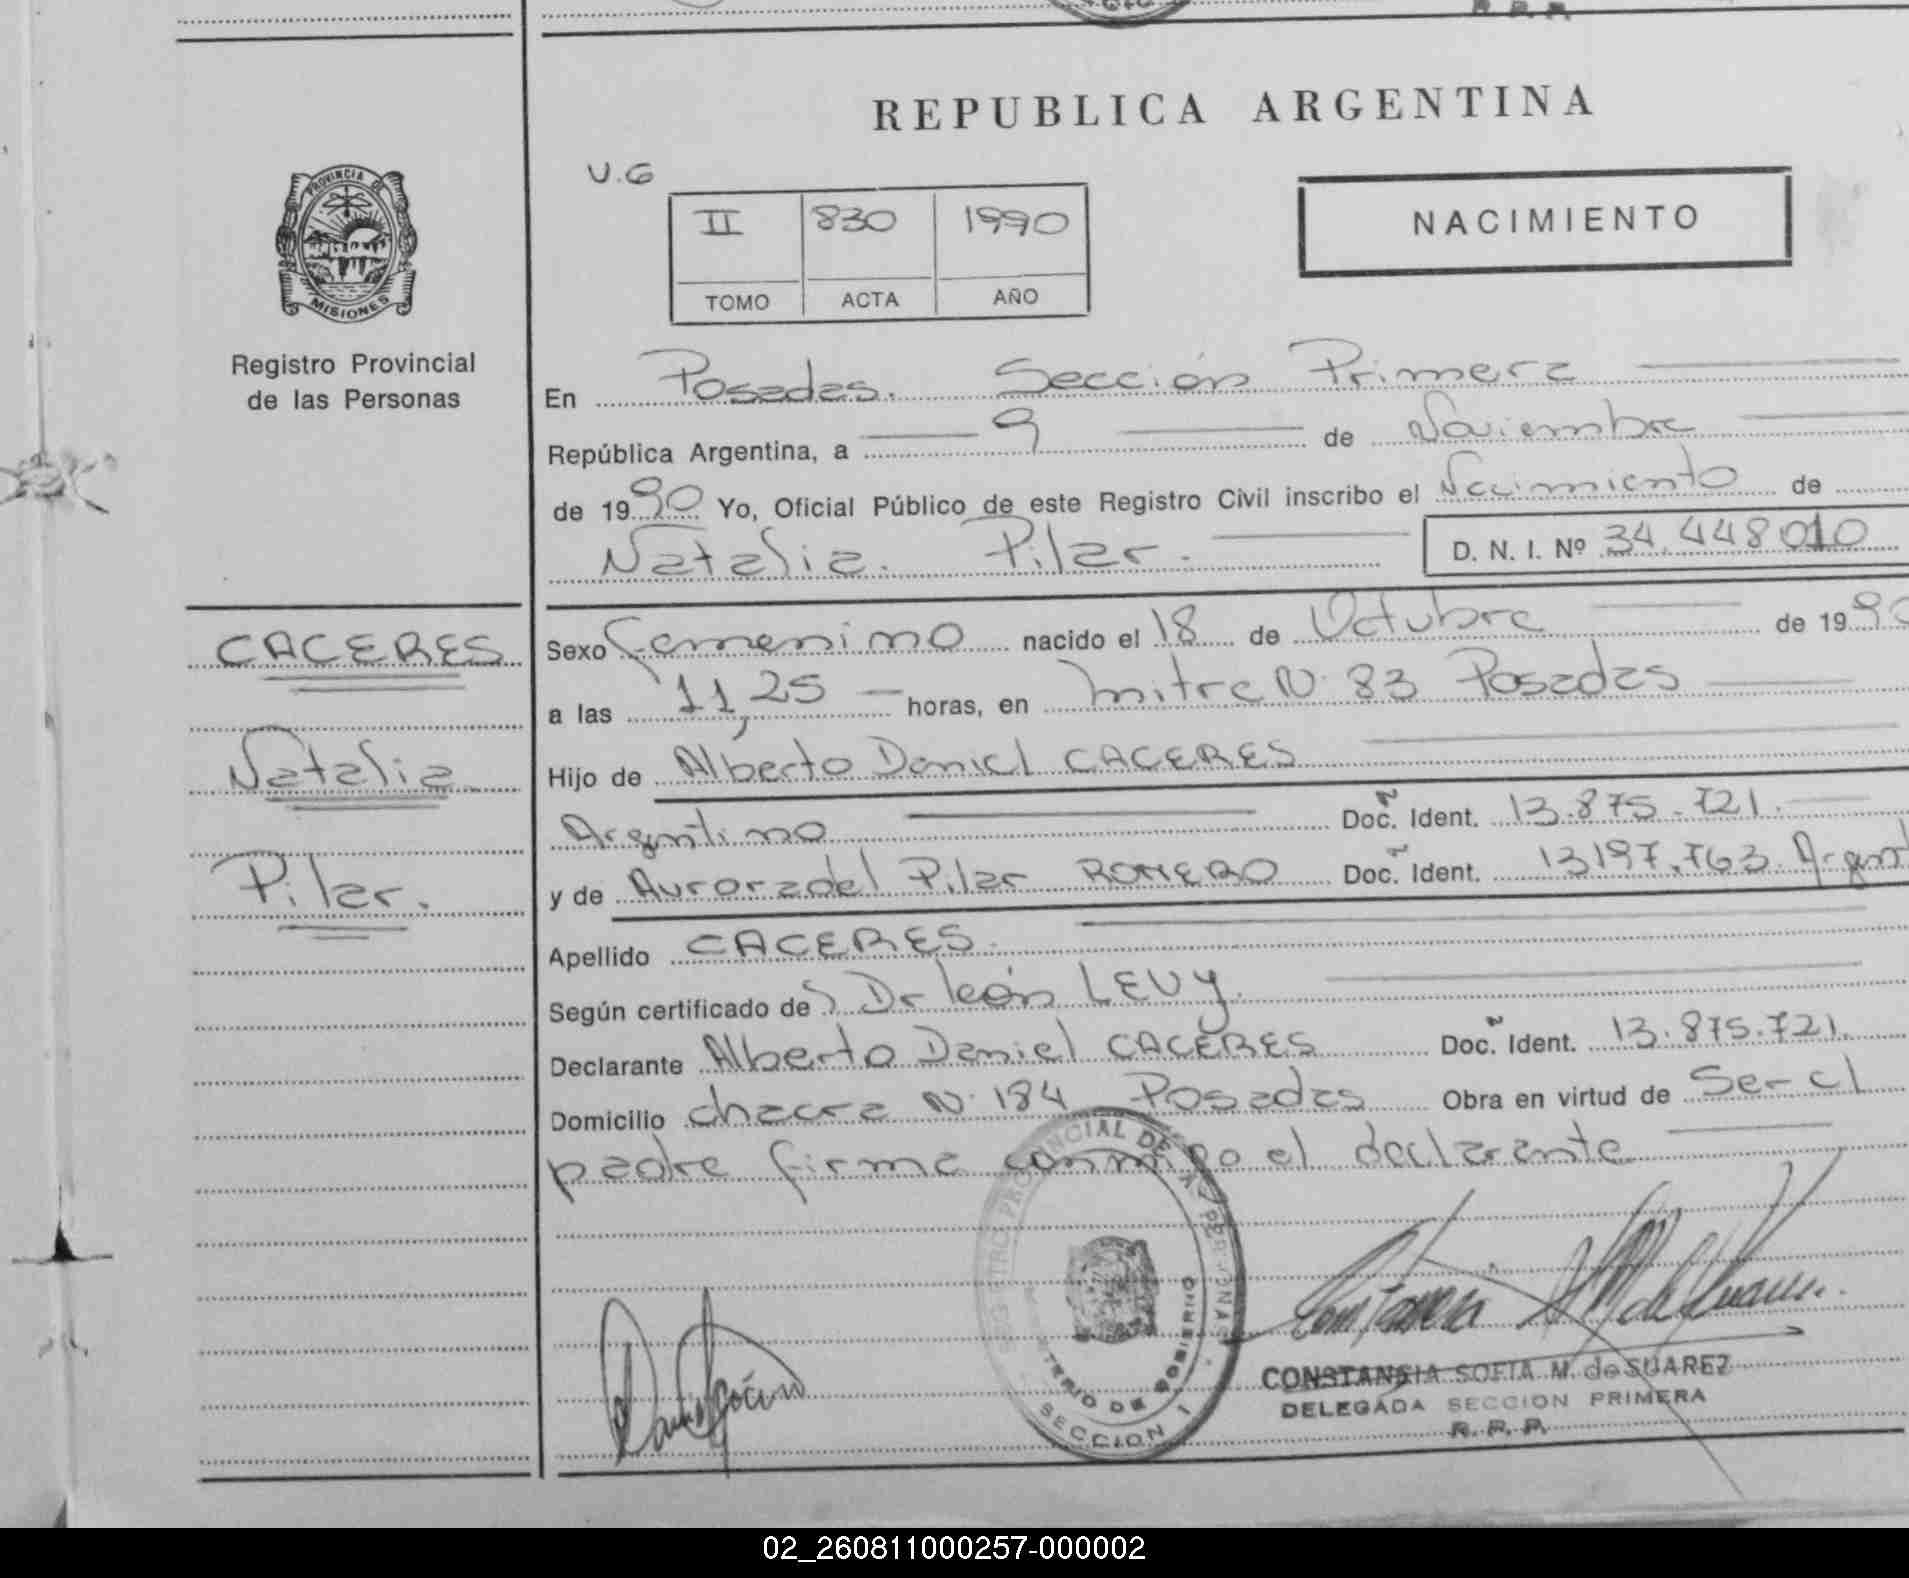 REPUBLICA ARGENTINA
U.G
II 830 1990
TOMO ACTA AÑO
NACIMIENTO
PROVINCIA DE
MISIONES
Registro Provincial
de las Personas
En Posadas. Sección Primera
República Argentina, a 9 de Noviembre
de 1990 Yo, Oficial Público de este Registro Civil inscribo el Nacimiento de
Natalia. Pilar. D. N. I. Nº 34.448010
CACERES
Natalia
Pilar.
Sexo Femenino nacido el 18 de Octubre de 1990
a las 11,25 horas, en Mitre N. 83 Posadas
Hijo de Alberto Daniel CACERES
Argentino Doc. Ident. 13.875.721.
y de Aurora del Pilar ROMERO Doc. Ident. 13197.763. Argent
Apellido CACERES.
Según certificado de Dr León LEVY.
Declarante Alberto Daniel CACERES Doc. Ident. 13.875.721.
Domicilio chacra N. 184 Posadas Obra en virtud de Ser el
padre firma conmigo el declarante
SECCION 1
CONSTANSIA SOFIA M. de SUAREZ
DELEGADA SECCION PRIMERA
R. P. P.
02_260811000257-000002